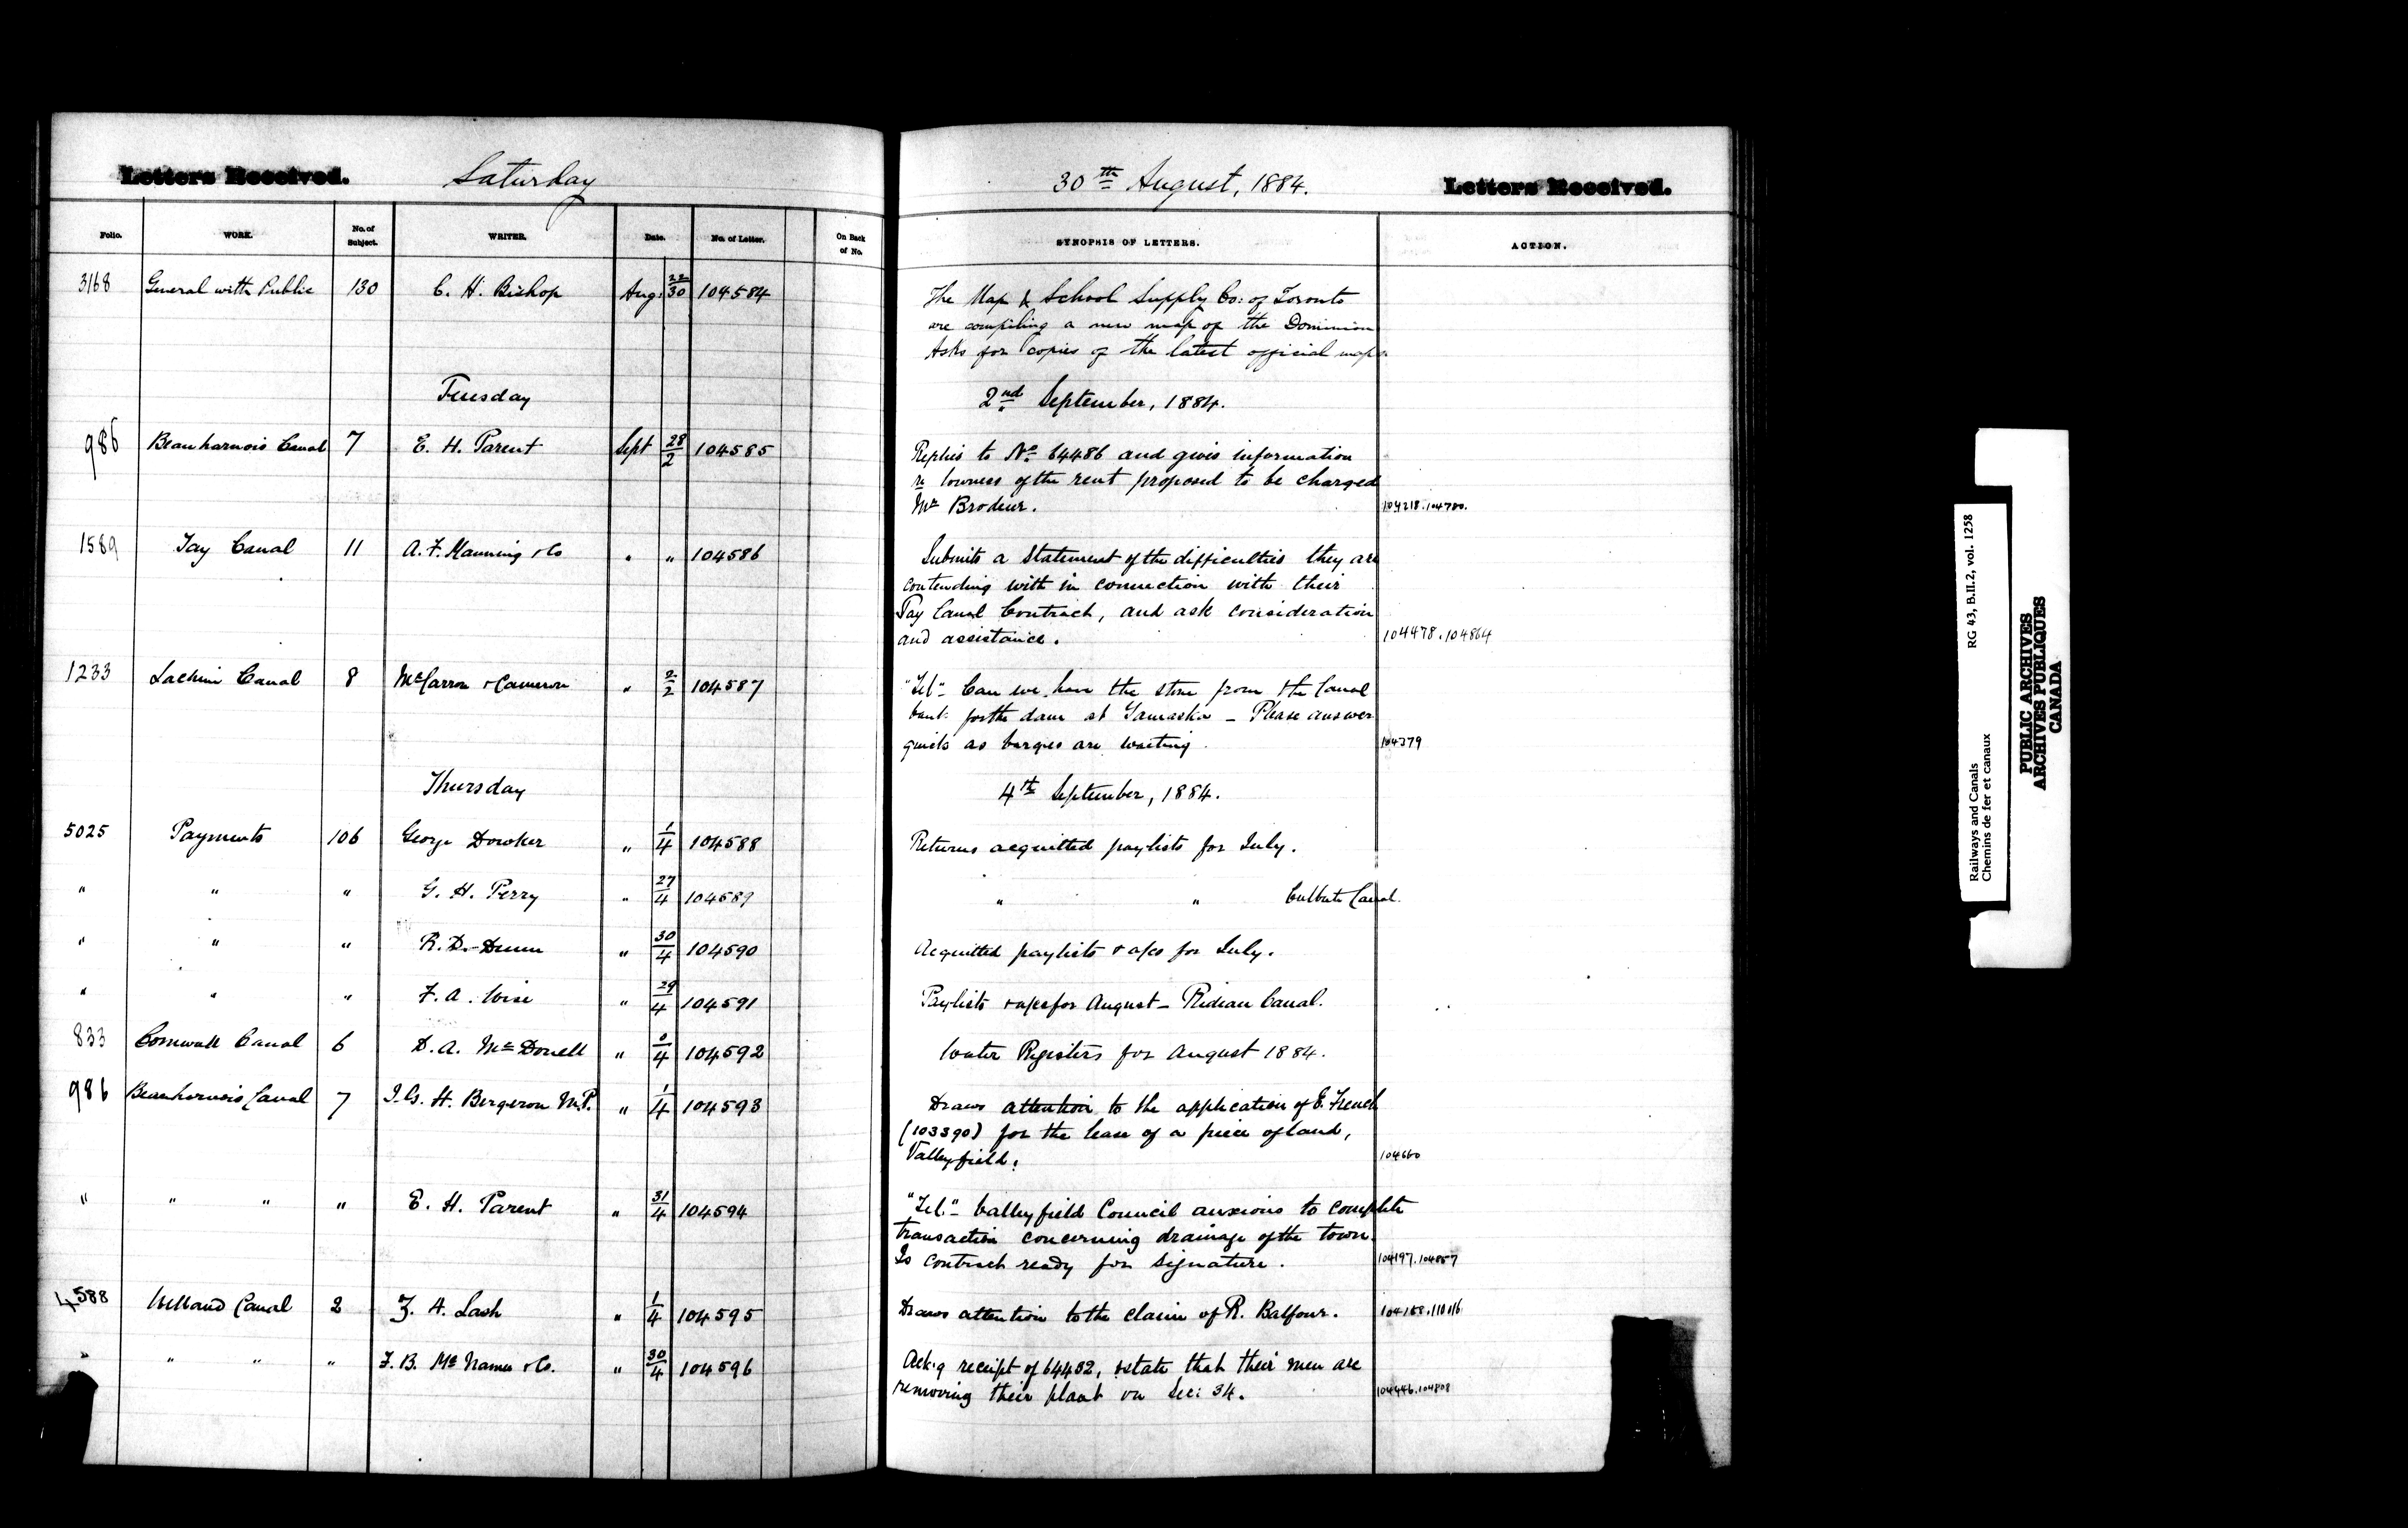 Letters Received.
Saturday
30th August, 1884.
Letters Received.
Folio. WORK. No. of Subject. WRITER. Date. No. of Letter. On Back of No. SYNOPSIS OF LETTERS. ACTION.
3168 General with Public 130 C. H. Bishop Aug: 22/30 104584
The Map & School Supply Co: of Toronto
are compiling a new map of the Dominion
Asks for copies of the latest official maps.
Tuesday
2nd September, 1884.
986 Beauharnois Canal 7 E. H. Parent Sept 28/2 104585
Replies to No. 64486 and gives information
re lowness of the rent proposed to be charged
Mr Brodeur. 104218.104780.
1589 Tay Canal 11 A. F. Manning & Co " " 104586
Submits a statement of the difficulties they are
contending with in connection with their
Tay Canal Contract, and ask consideration
and assistance. 104478.104864
1233 Lachine Canal 8 McCarron & Cameron " 2/2 104587
"Tel"- Can we have the stone from the Canal
bank for the dam at Yamaska - Please answer
quick as barges are waiting. 104379
Thursday
4th September, 1884.
5025 Payments 106 George Dowker " 1/4 104588 Returns acquitted paylists for July.
" " " G. H. Perry " 27/4 104589 " " Culbute Canal.
" " " R. D. Dunn " 30/4 104590 Acquitted paylists & a/cs for July.
" " " F. A. Wise " 29/4 104591 Paylists & a/cs for August - Rideau Canal.
833 Cornwall Canal 6 D. A. McDonell " 0/4 104592 Water Registers for August 1884.
986 Beauharnois Canal 7 J. G. H. Bergeron M.P. " 1/4 104593
Draws attention to the application of E. French
(103390) for the lease of a piece of land,
Valleyfield. 104660
" " " " E. H. Parent " 31/4 104594
"Tel."- Valleyfield Council anxious to complete
transaction concerning drainage of the town.
Is contract ready for signature. 104197.104857
4588 Welland Canal 2 Z. A. Lash " 1/4 104595 Draws attention to the claim of R. Balfour. 104158.110116
" " " " F. B. McNamee & Co. " 30/4 104596
Ack.g receipt of 64432, & state that their men are
removing their plant on Sec: 34. 104446.104808
Railways and Canals RG 43, B.II.2, vol. 1258
Chemins de fer et canaux
PUBLIC ARCHIVES
ARCHIVES PUBLIQUES
CANADA